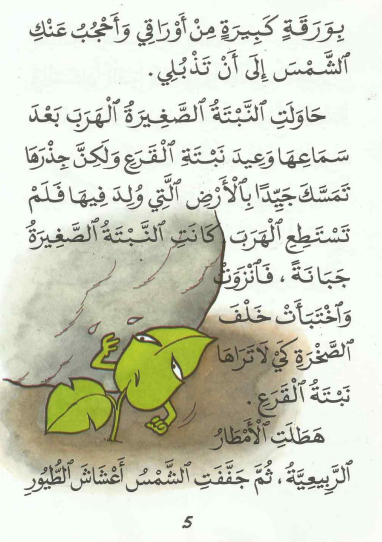 بِوَرَقَةٍ كَبِيرَةٍ مِنْ أَوْرَاقِي وَأَحْجُبُ عَنْكِ
ٱلشَّمْسَ إِلَى أَنْ تَذْبُلِي.
حَاوَلَتِ ٱلنَّبْتَةُ ٱلصَّغِيرَةُ ٱلْهَرَبَ بَعْدَ
سَمَاعِهَا وَعِيدَ نَبْتَةِ ٱلْقَرَعِ وَلَكِنَّ جِذْرَهَا
تَمَسَّكَ جَيِّدًا بِٱلْأَرْضِ ٱلَّتِي وُلِدَ فِيهَا فَلَمْ
تَسْتَطِعِ ٱلْهَرَبَ كَانَتِ ٱلنَّبْتَةُ ٱلصَّغِيرَةُ
جَبَانَةً، فَٱنْزَوَتْ
وَٱخْتَبَأَتْ خَلْفَ
ٱلصَّخْرَةِ كَيْ لَا تَرَاهَا
نَبْتَةُ ٱلْقَرَعِ.
هَطَلَتِ ٱلْأَمْطَارُ
ٱلرَّبِيعِيَّةُ، ثُمَّ جَفَّفَتِ ٱلشَّمْسُ أَعْشَاشَ ٱلطُّيُورِ
5